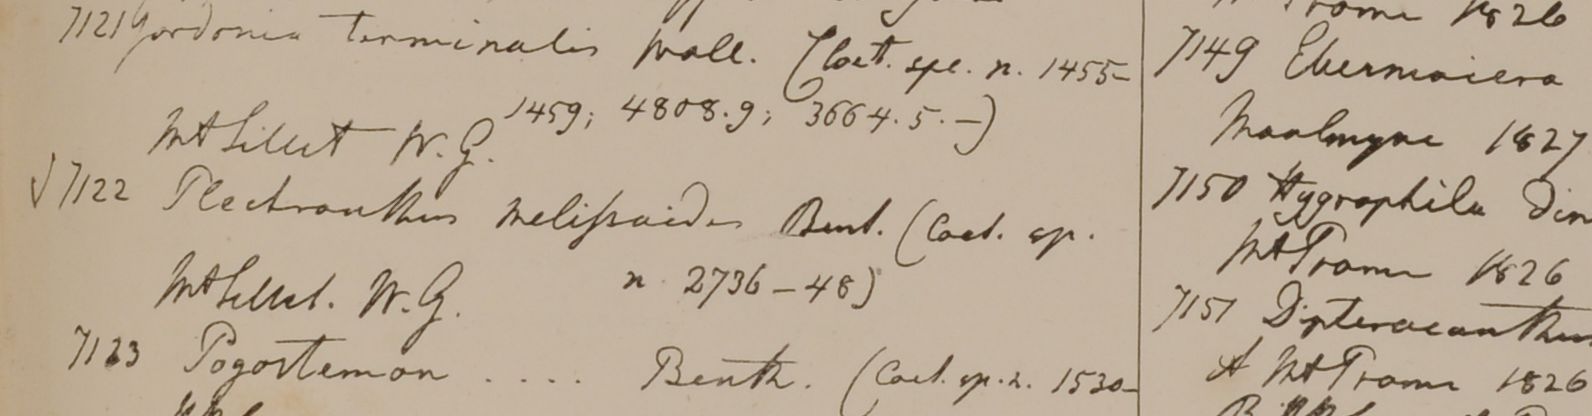 7121 Gordonia terminalis Wall. (Coet. spe. n. 1455-
1459; 4808.9; 3664.5.-)
Mt Sillet W. G.
√ 7122 Plectranthus melissoides Bent. (Coet. sp.
n 2736-48)
Mt Sillet. W. G.
7123 Pogostemon .... Benth. (Coet. sp. n. 1530-
Prome 1826
7149 Ebermaiera
Moalmyne 1827
7150 Hygrophila Din
Mt Prome 1826
7151 Dipteracanthus
A Mt Prome 1826